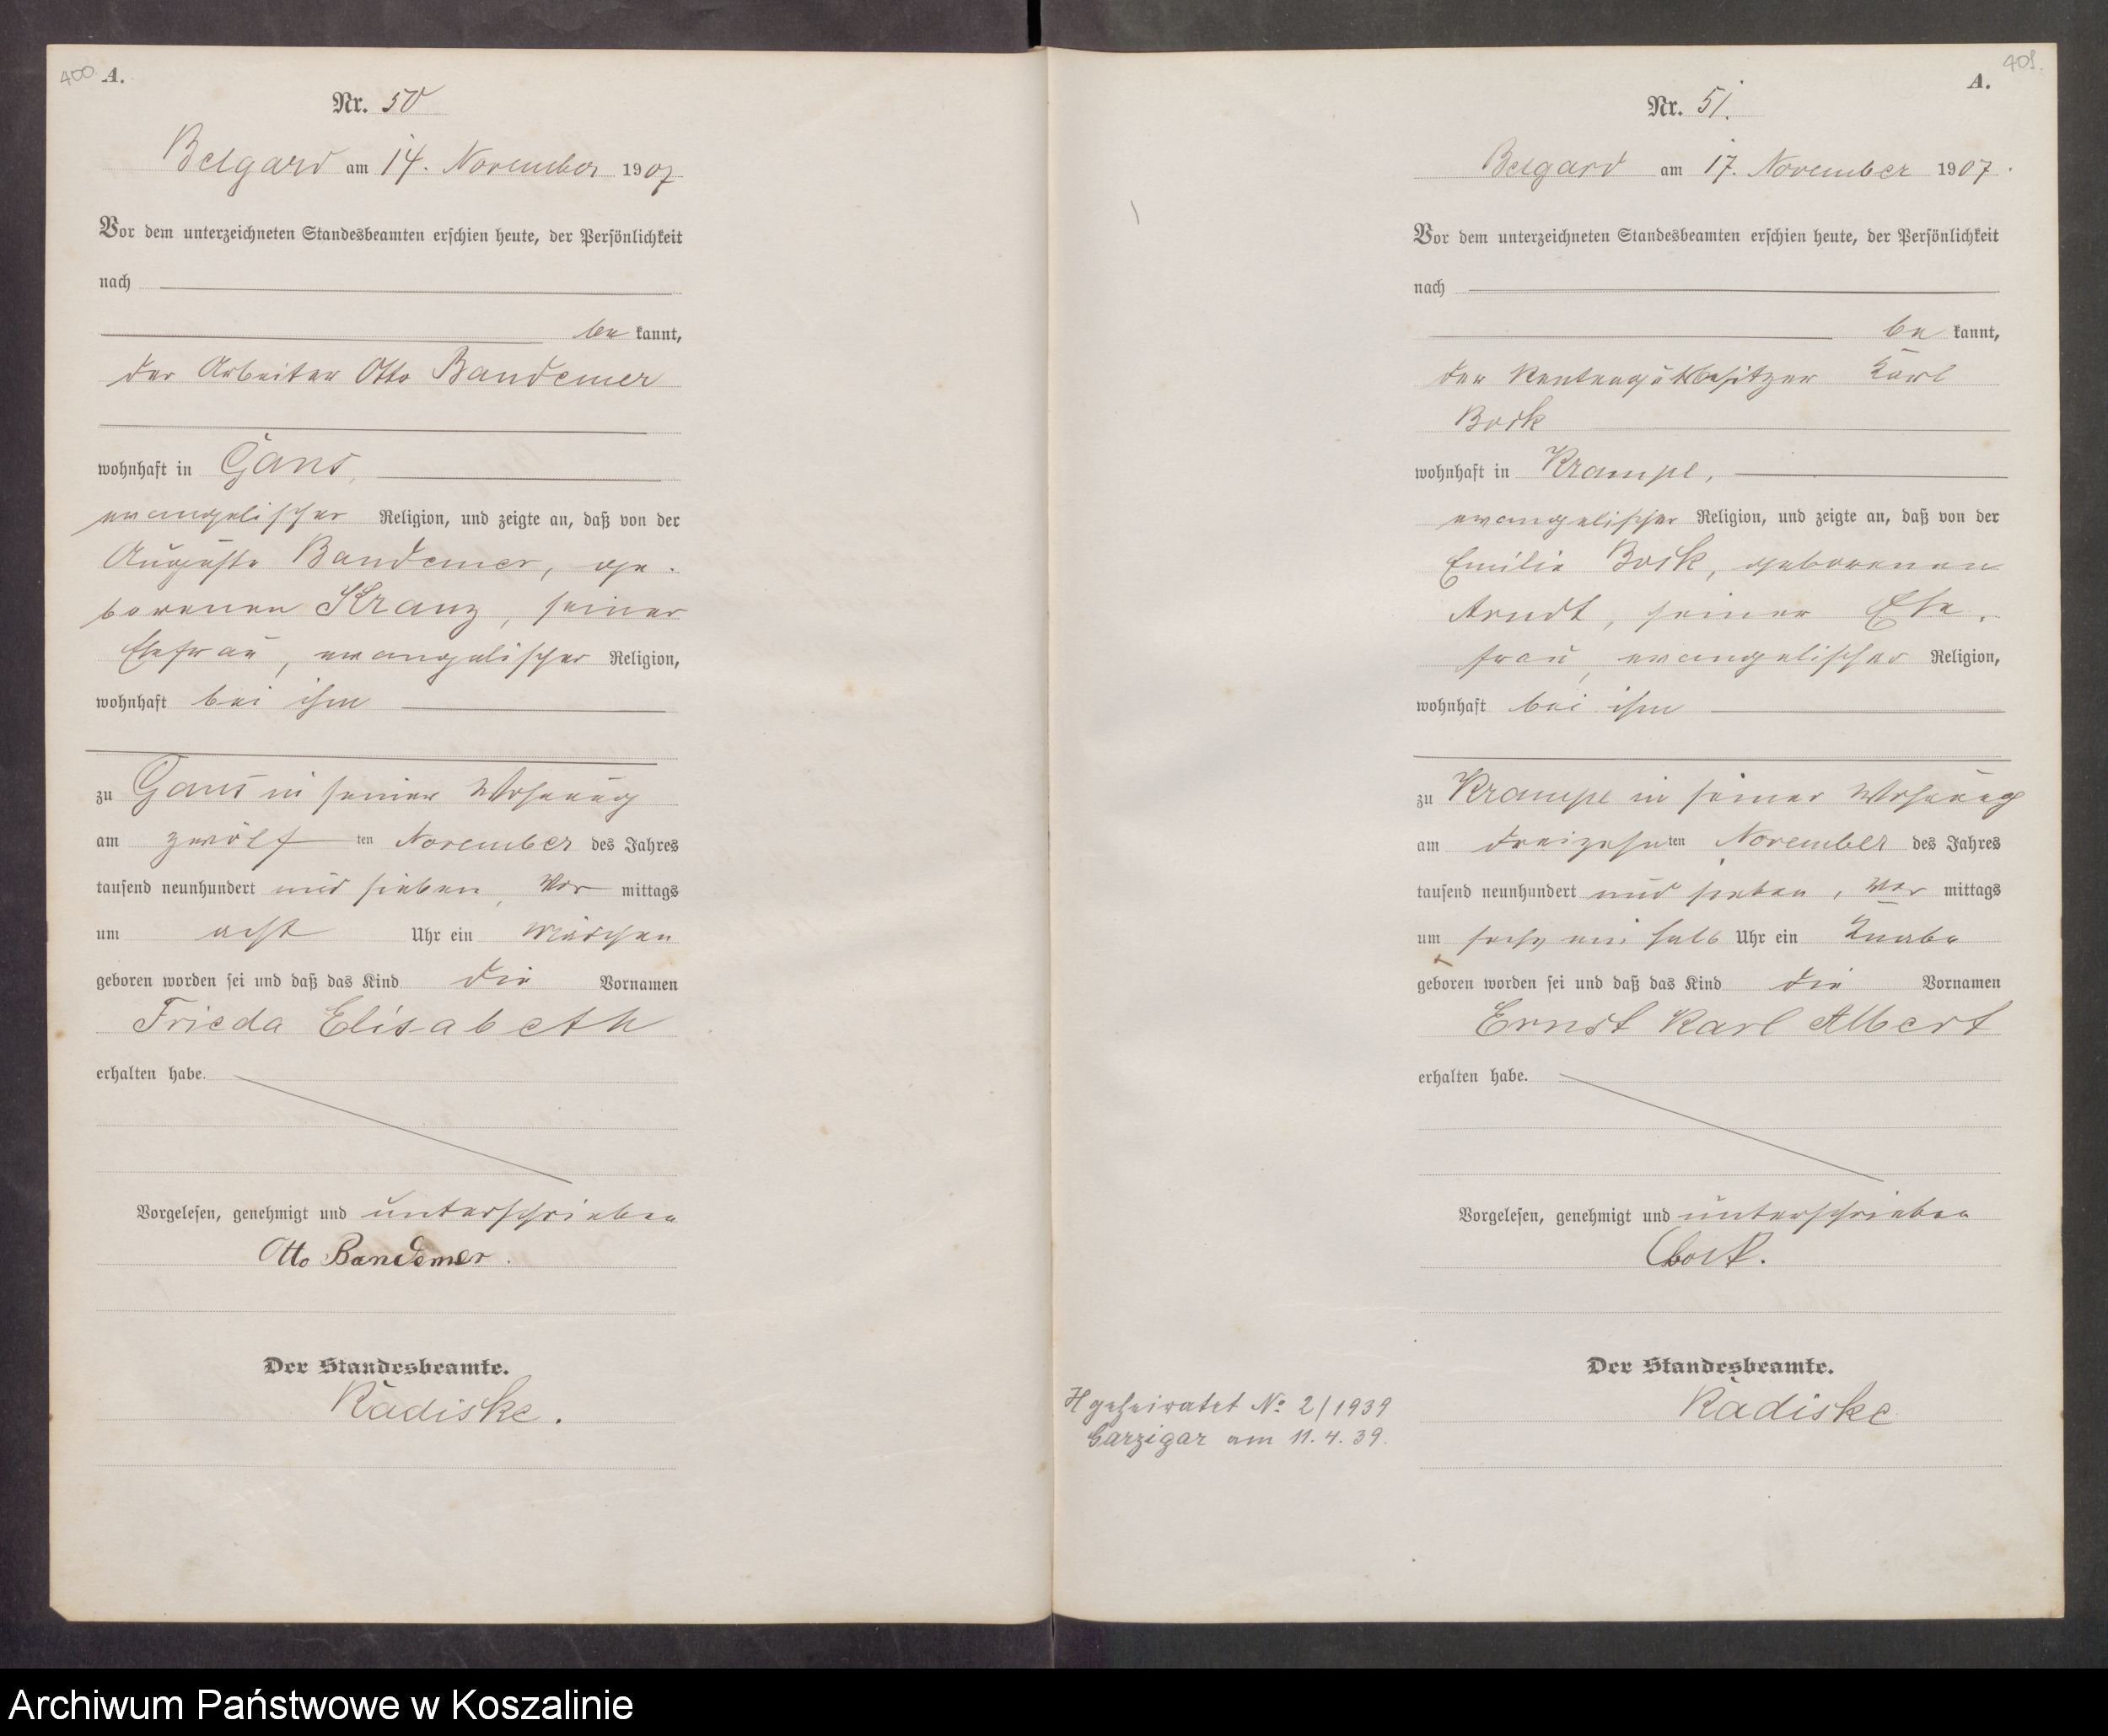 400 A.
Nr. 50
Belgard am 14. November 1907
Vor dem unterzeichneten Standesbeamten erschien heute, der Persönlichkeit
nach
be kannt,
der Arbeiter Otto Bandemer
wohnhaft in Gans,
evangelischer Religion, und zeigte an, daß von der
Auguste Bandemer, ge-
borenen Kranz, seiner
Ehefrau, evangelischer Religion,
wohnhaft bei ihm
zu Gans in seiner Wohnung
am zwölf ten November des Jahres
tausend neunhundert und sieben, Vor mittags
um acht Uhr ein Mädchen
geboren worden sei und daß das Kind die Vornamen
Frieda Elisabeth
erhalten habe.
Vorgelesen, genehmigt und unterschrieben
Otto Bandemer.
Der Standesbeamte.
Radiske.
401.
A.
Nr. 51.
Belgard am 17. November 1907.
Vor dem unterzeichneten Standesbeamten erschien heute, der Persönlichkeit
nach
be kannt,
der Rentengutsbesitzer Karl
Bock
wohnhaft in Krampe,
evangelischer Religion, und zeigte an, daß von der
Emilie Bock, geborenen
Arndt, seiner Ehe-
frau, evangelischer Religion,
wohnhaft bei ihm
zu Krampe in seiner Wohnung
am dreizehn ten November des Jahres
tausend neunhundert und sieben, Vor mittags
um sechs ein halb Uhr ein Knabe
geboren worden sei und daß das Kind die Vornamen
Ernst Karl Albert
erhalten habe.
Vorgelesen, genehmigt und unterschrieben
Bock.
Der Standesbeamte.
Radiske
H geheiratet No 2/1939
Garzigar am 11.4.39.
Archiwum Państwowe w Koszalinie